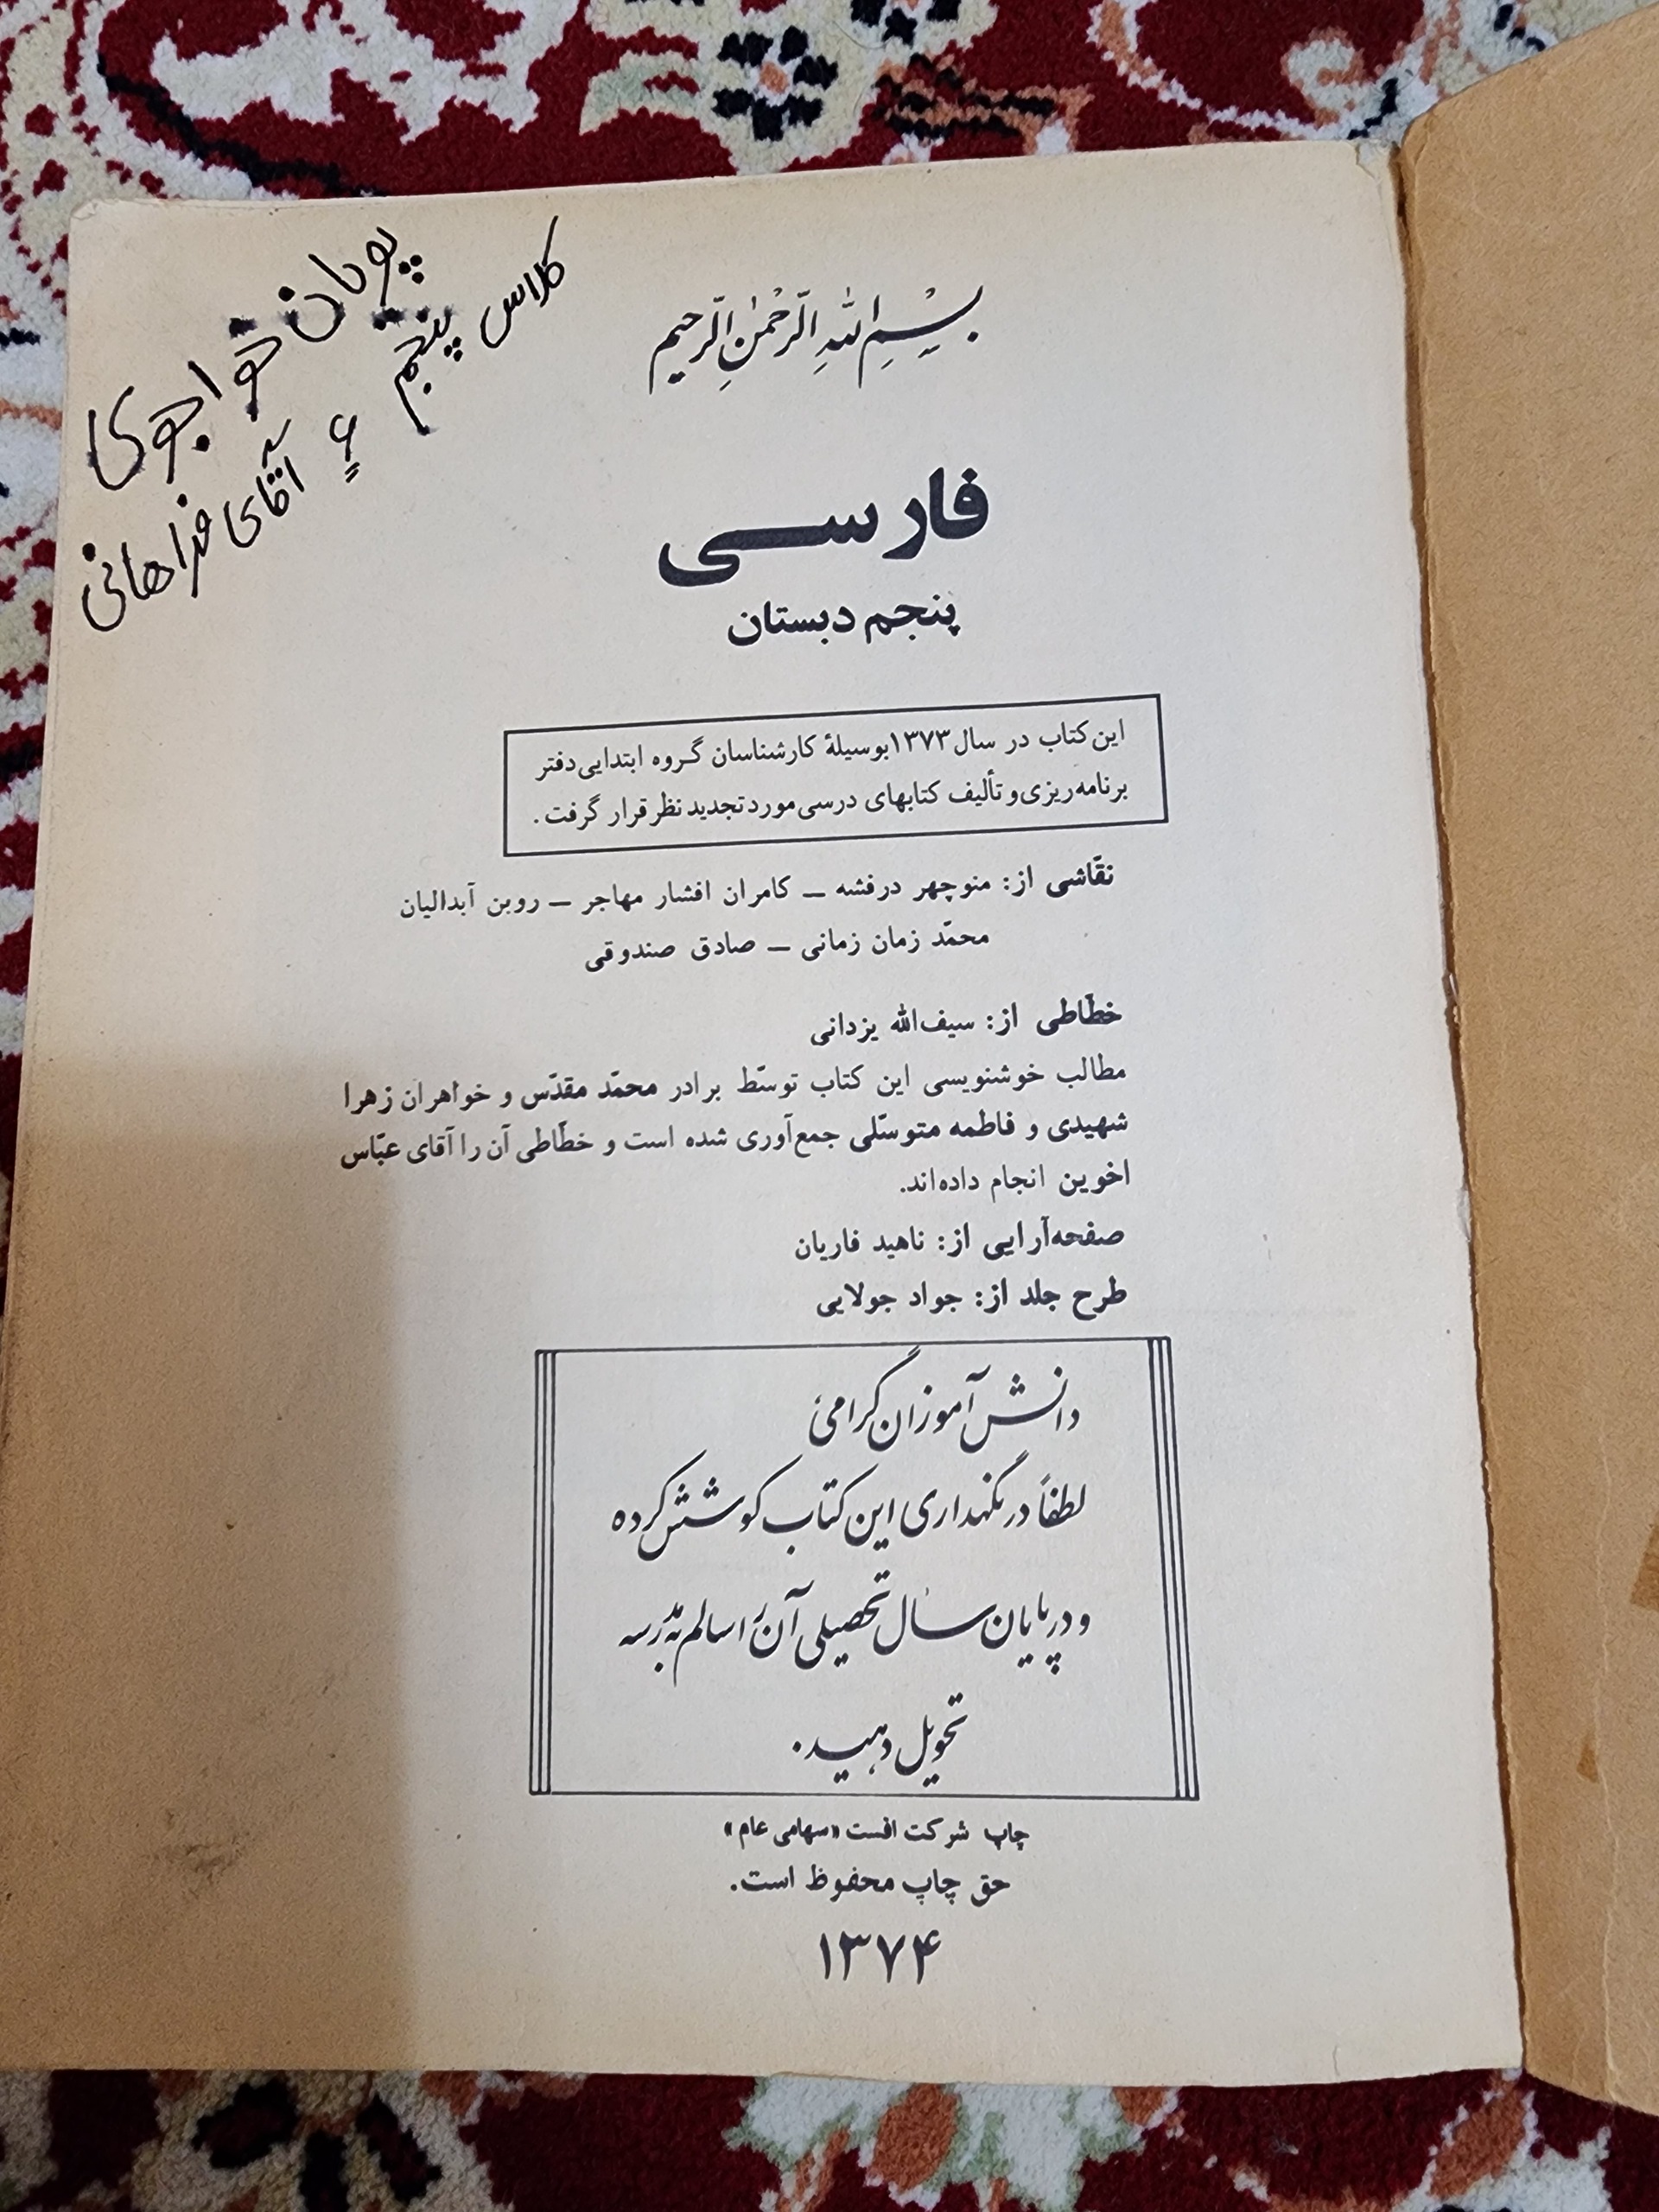 پویان خواجوی
کلاس پنجم ۶ٍ آقای فراهانی
بِسْمِ اللهِ الرَّحْمٰنِ الرَّحیم
فارسی
پنجم دبستان
این کتاب در سال ۱۳۷۳ بوسیلهٔ کارشناسان گروه ابتدایی دفتر
برنامه‌ریزی و تألیف کتابهای درسی مورد تجدید نظر قرار گرفت.
نقّاشی از: منوچهر درفشه ــ کامران افشار مهاجر ــ روبن آبدالیان
محمّد زمان زمانی ــ صادق صندوقی
خطّاطی از: سیف‌الله یزدانی
مطالب خوشنویسی این کتاب توسّط برادر محمّد مقدّس و خواهران زهرا
شهیدی و فاطمه متوسّلی جمع‌آوری شده است و خطّاطی آن را آقای عبّاس
اخوین انجام داده‌اند.
صفحه‌آرایی از: ناهید فاریان
طرح جلد از: جواد جولایی
دانش‌آموزان گرامی
لطفاً در نگهداری این کتاب کوشش کرده
و در پایان سال تحصیلی آن را سالم به مدرسه
تحویل دهید.
چاپ شرکت افست «سهامی عام»
حق چاپ محفوظ است.
۱۳۷۴